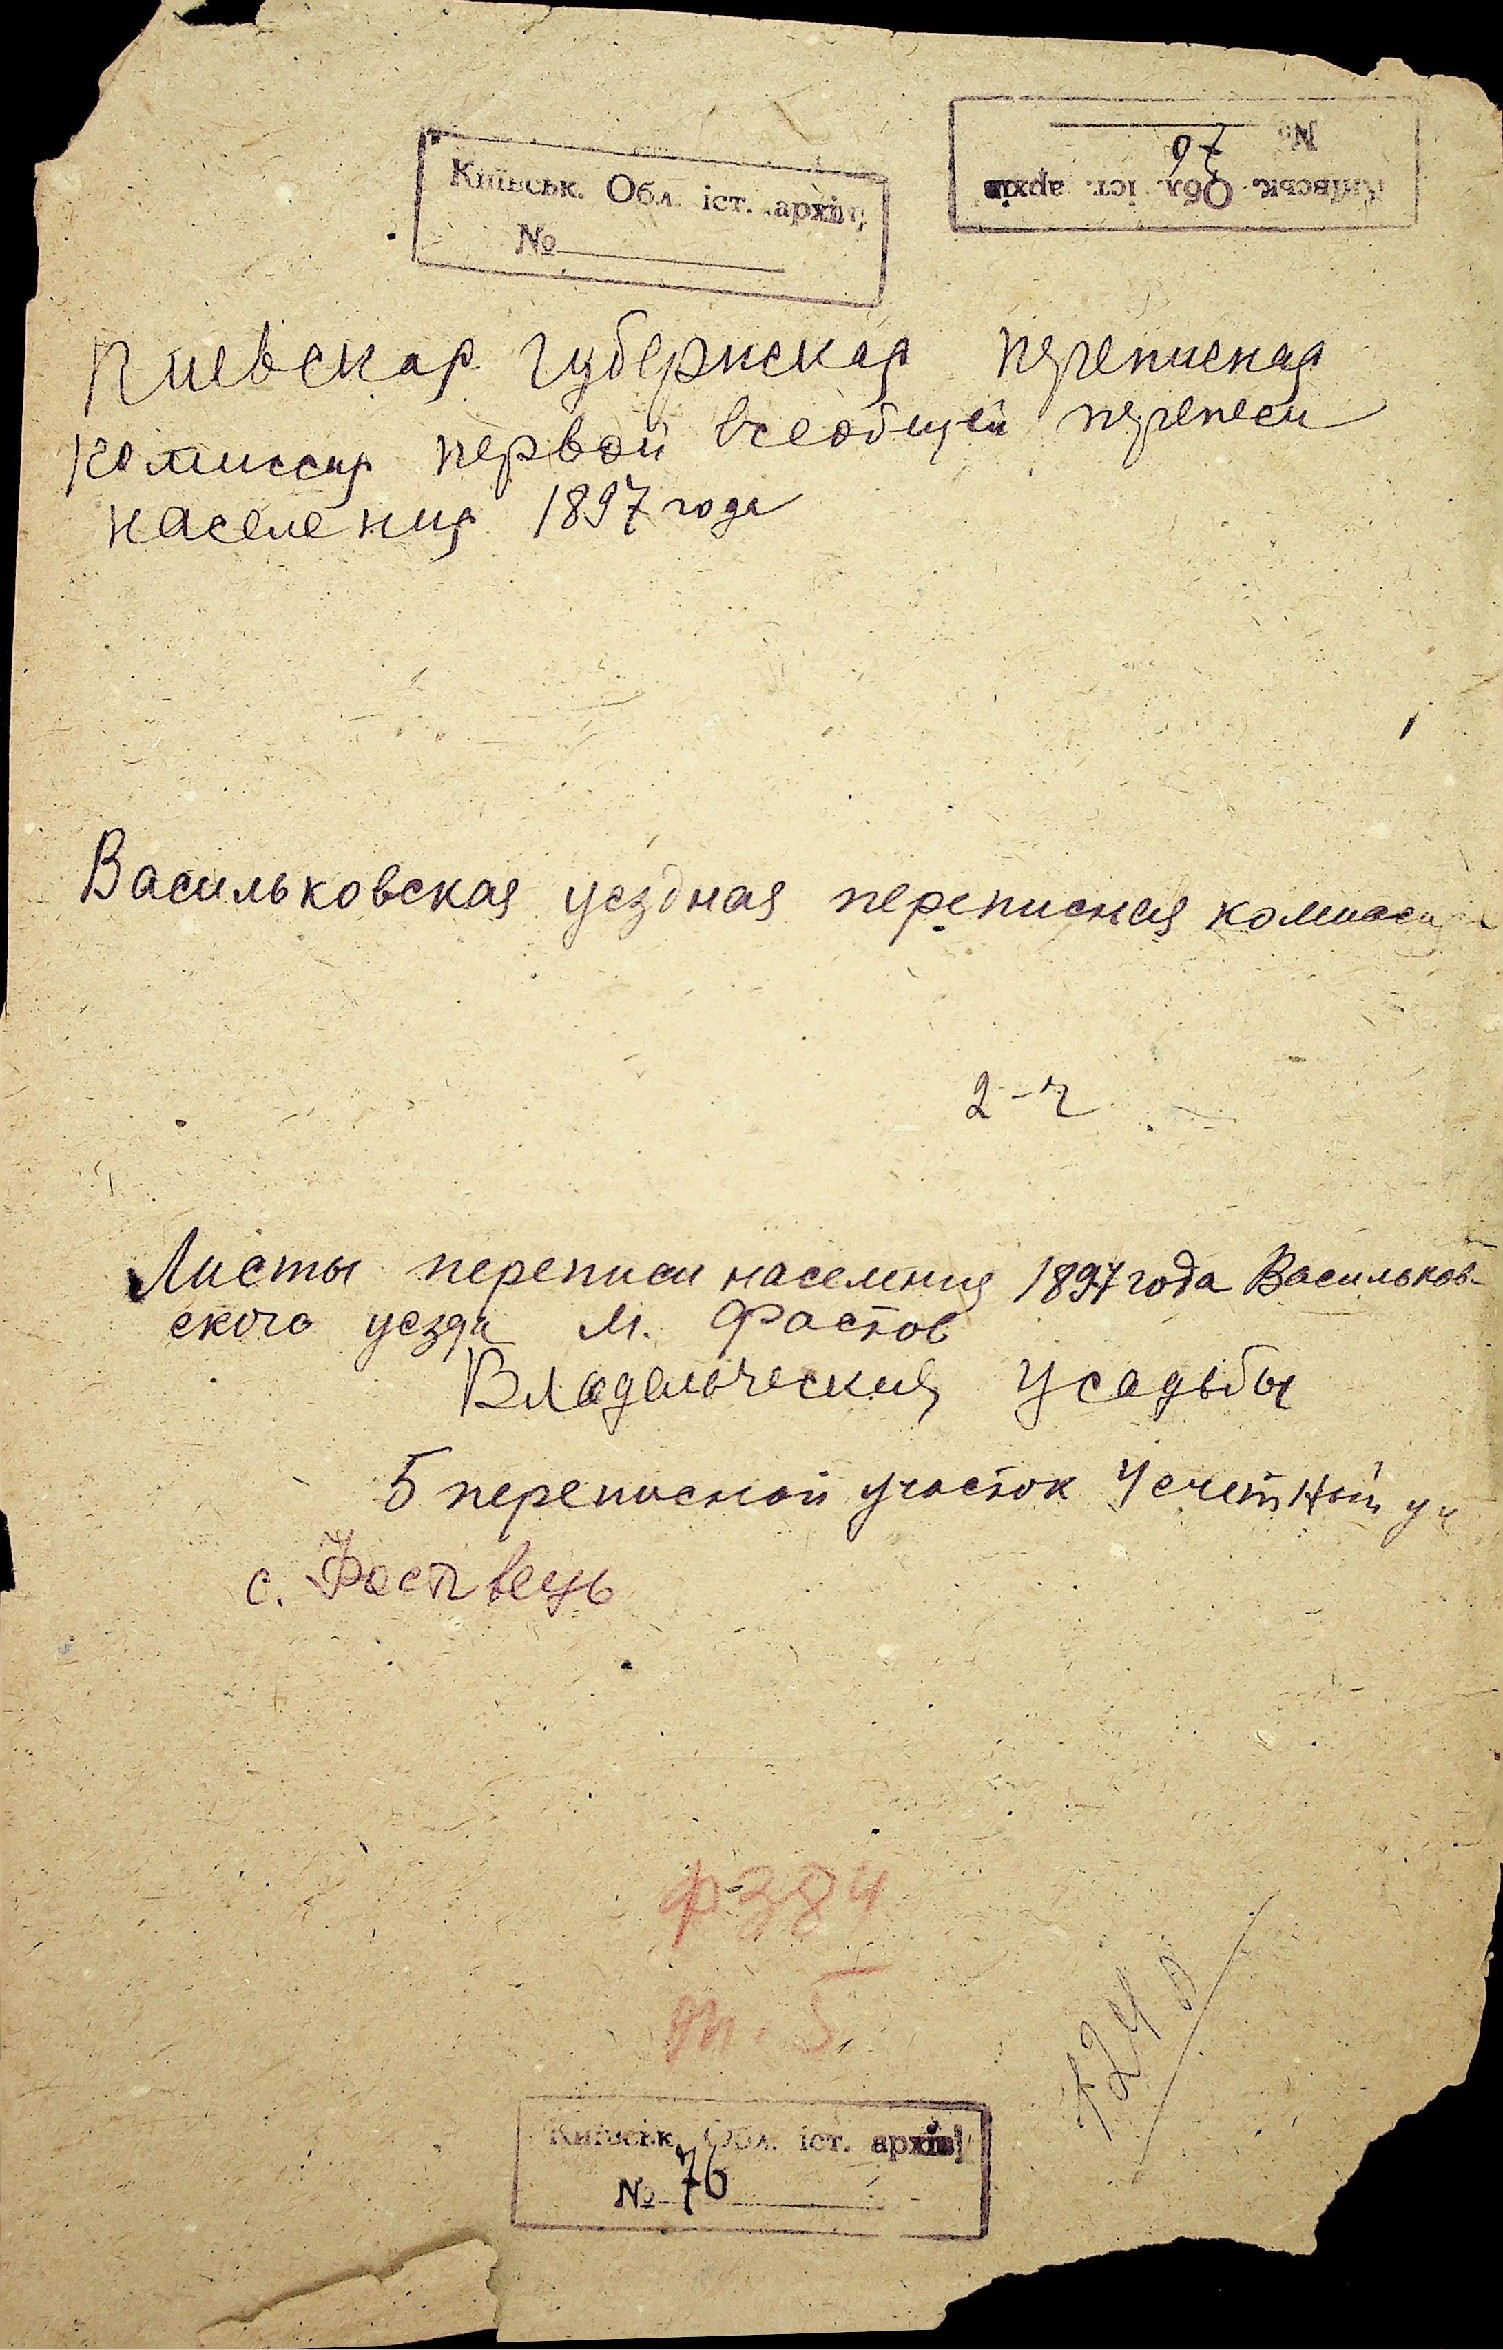 Київськ. Обл. іст. архів
№
Київськ. Обл. іст. архів
№ 76
Киевская губернская переписная
комиссия первой всеобщей переписи
населения 1897 года
Васильковская уездная переписная комисси
2-ч
Листы переписи населения 1897 года Васильков-
ского уезда м. Фастов
Владельческия усадьбы
5 переписной участок 4 счетный уч
с. Фастівець
ф 384
т. 5
Київськ. Обл. іст. архів
№ 76